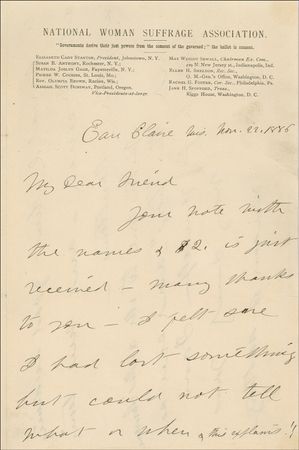 NATIONAL WOMAN SUFFRAGE ASSOCIATION.
"Governments derive their just powers from the consent of the governed;" the ballot is consent.
ELIZABETH CADY STANTON, President, Johnstown, N. Y.
SUSAN B. ANTHONY, Rochester, N. Y.;
MATILDA JOSLYN GAGE, Fayetteville, N. Y.;
PHOEBE W. COUZINS, St. Louis, Mo.;
REV. OLYMPIA BROWN, Racine, Wis.;
ABIGAIL SCOTT DUNIWAY, Portland, Oregon,
Vice-Presidents-at-large.
MAY WRIGHT SEWALL, Chairman Ex. Com.,
N. New Jersey st., Indianapolis, Ind.
ELLEN H. SHELDON, Rec. Sec.,
Q. M.-Gen.'s Office, Washington, D. C.
RACHEL G. FOSTER, Cor. Sec., Philadelphia, Pa.
JANE H. SPOFFORD, Treas.,
Riggs House, Washington, D. C.
Eau Claire Wis. Nov. 22. 1886
My Dear Friend
Your note with
the names & $2. is just
received — many thanks
to you — I felt sure
I had lost something
but could not tell
what or when & this explains!!